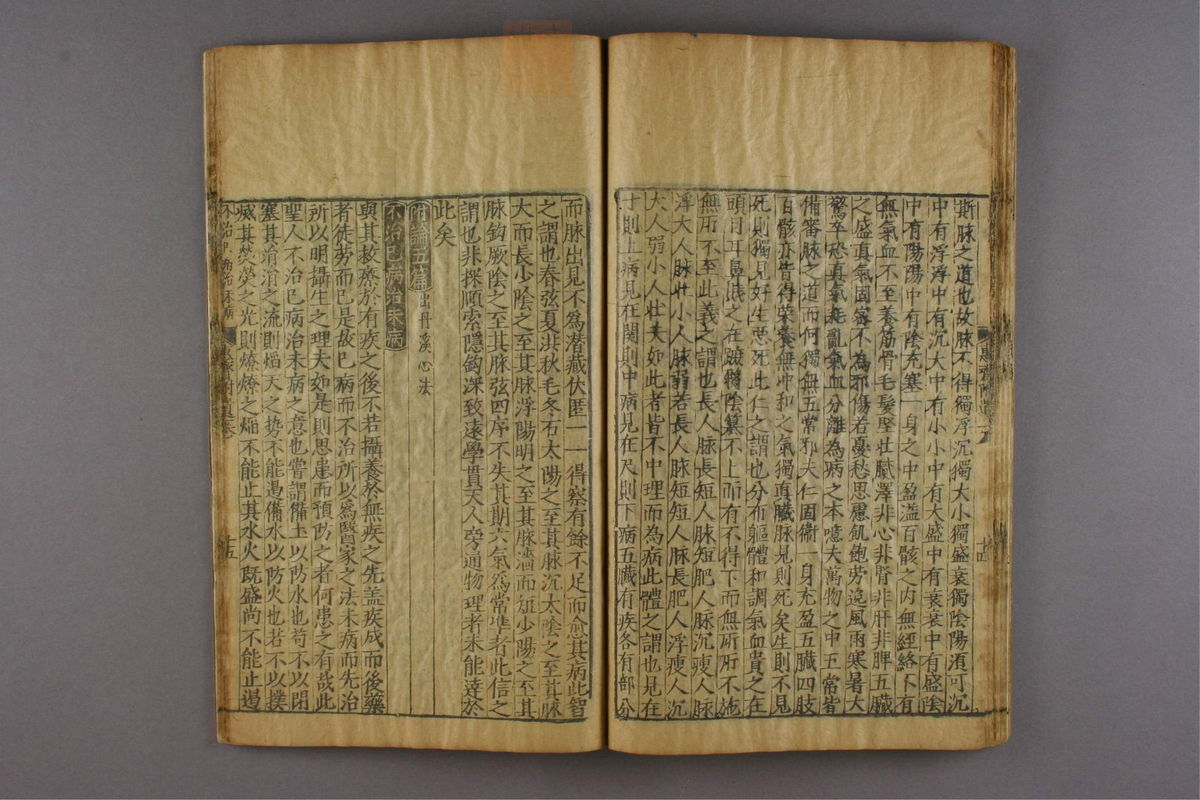 斯脉之道也故脉不得獨浮沉獨大小獨盛衰獨陰陽湏可沉
中有浮浮中有沉大中有小小中有大盛中有衰衰中有盛陰
中有陽陽中有陰充塞一身之中盈溢百骸之内無經絡不有
無氣血不至養筋骨毛髮堅壮臟澤非心非腎非肝非脾五臟
之盛真氣固宻不為邪傷若憂愁思慮飢飽勞逸風雨寒暑大
驚卒恐真氣耗亂氣血分離為病之本噫夫萬物之中五常皆
備審脉之道而何獨無五常邪夫仁固衛一身充盈五臟四肢
百骸亦皆得榮養無冲和之氣獨真臟脉見則死矣生則不見
死則獨見好生惡死此仁之謂也分布軀體和調氣血貴之在
頭目耳鼻賤之在蹠臀陰篡不上而有不得下而無所所不施
無所不至此義之謂也長人脉長短人脉短肥人脉沉瘦人脉
浮大人脉壮小人脉弱若長人脉短短人脉長肥人浮瘦人沉
大人弱小人壮夫如此者皆不中理而為病此體之謂也見在
寸則上病見在関則中病見在尺則下病五臟有疾各有部分
十四
而脉出見不為潜藏伏匿一一得察有餘不足而愈其病此智
之謂也春弦夏洪秋毛冬石太陽之至其脉沉太陰之至其脉
大而長少陰之至其脉浮陽明之至其脉濇而短少陽之至其
脉鈎厥陰之至其脉弦四序不失其期六氣為常凖者此信之
謂也非探賾索隱鈎深致遠學貫天人旁通物理者未能達於
此矣
附論五篇 出丹溪心法
不治已病治未病
與其救療於有疾之後不若攝養於無疾之先盖疾成而後藥
者徒勞而已是故已病而不治所以為醫家之法未病而先治
所以明攝生之理夫如是則思患而預防之者何患之有哉此
聖人不治已病治未病之意也嘗謂備土以防水也苟不以閉
塞其涓涓之流則滔天之势不能遏備水以防火也若不以撲
滅其熒熒之光則燎燎之焰不能止其水火既盛尚不能止遏
十五